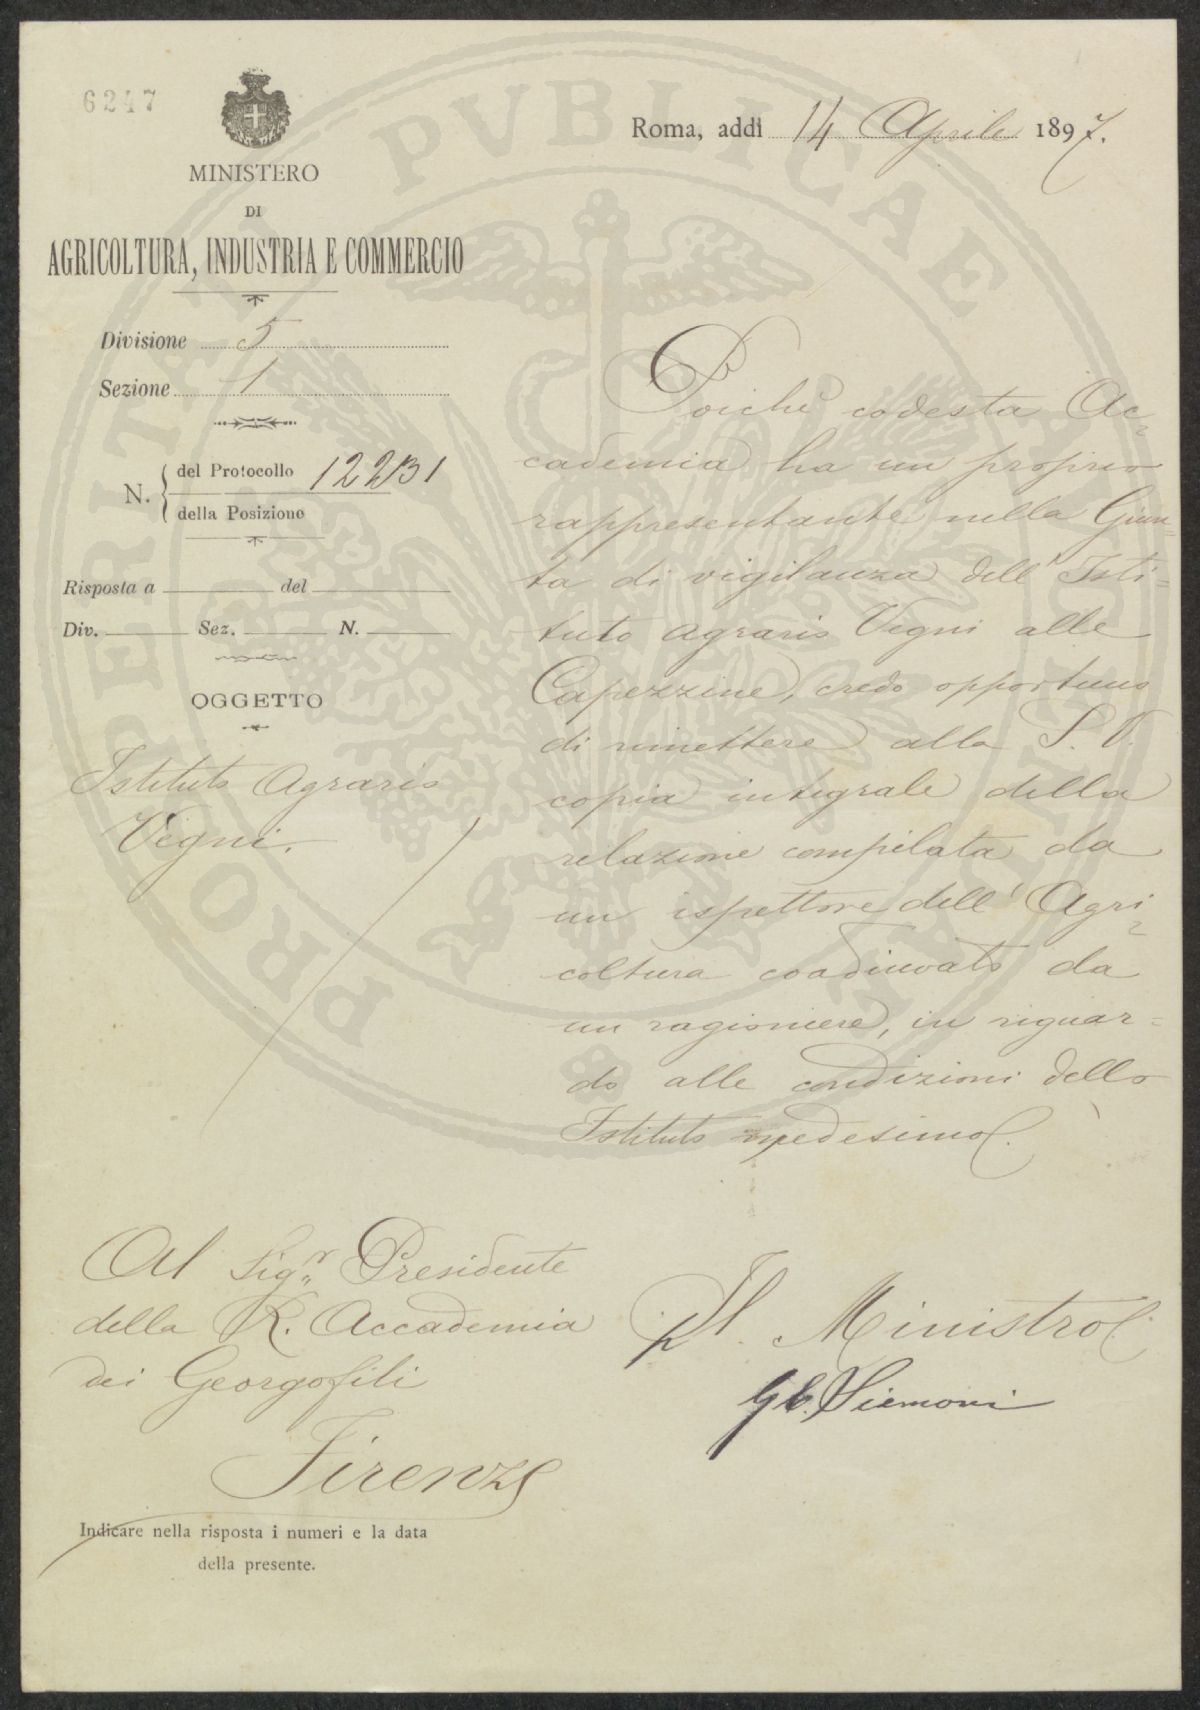 6247
MINISTERO
DI
AGRICOLTURA, INDUSTRIA E COMMERCIO
Divisione 5
Sezione 1
N. del Protocollo 12231
della Posizione
Risposta a del
Div. Sez. N.
OGGETTO
Istituto Agrario
Vegni.
Roma, addì 14 Aprile 1897.
Poichè codesta Ac-
cademia ha un proprio
rappresentante nella Giun-
ta di vigilanza dell' Isti-
tuto agrario Vegni alle
Capezzine, credo opportuno
di rimettere alla S. V.
copia integrale della
relazione compilata da
un ispettore dell' Agri-
coltura coadiuvato da
un ragioniere, in riguar-
do alle condizioni dello
Istituto medesimo.
Al Sigr Presidente
della R. Accademia
dei Georgofili
Firenze
pIl Ministro
Siemoni
Indicare nella risposta i numeri e la data
della presente.
PROSPERITATI PVBLICAE